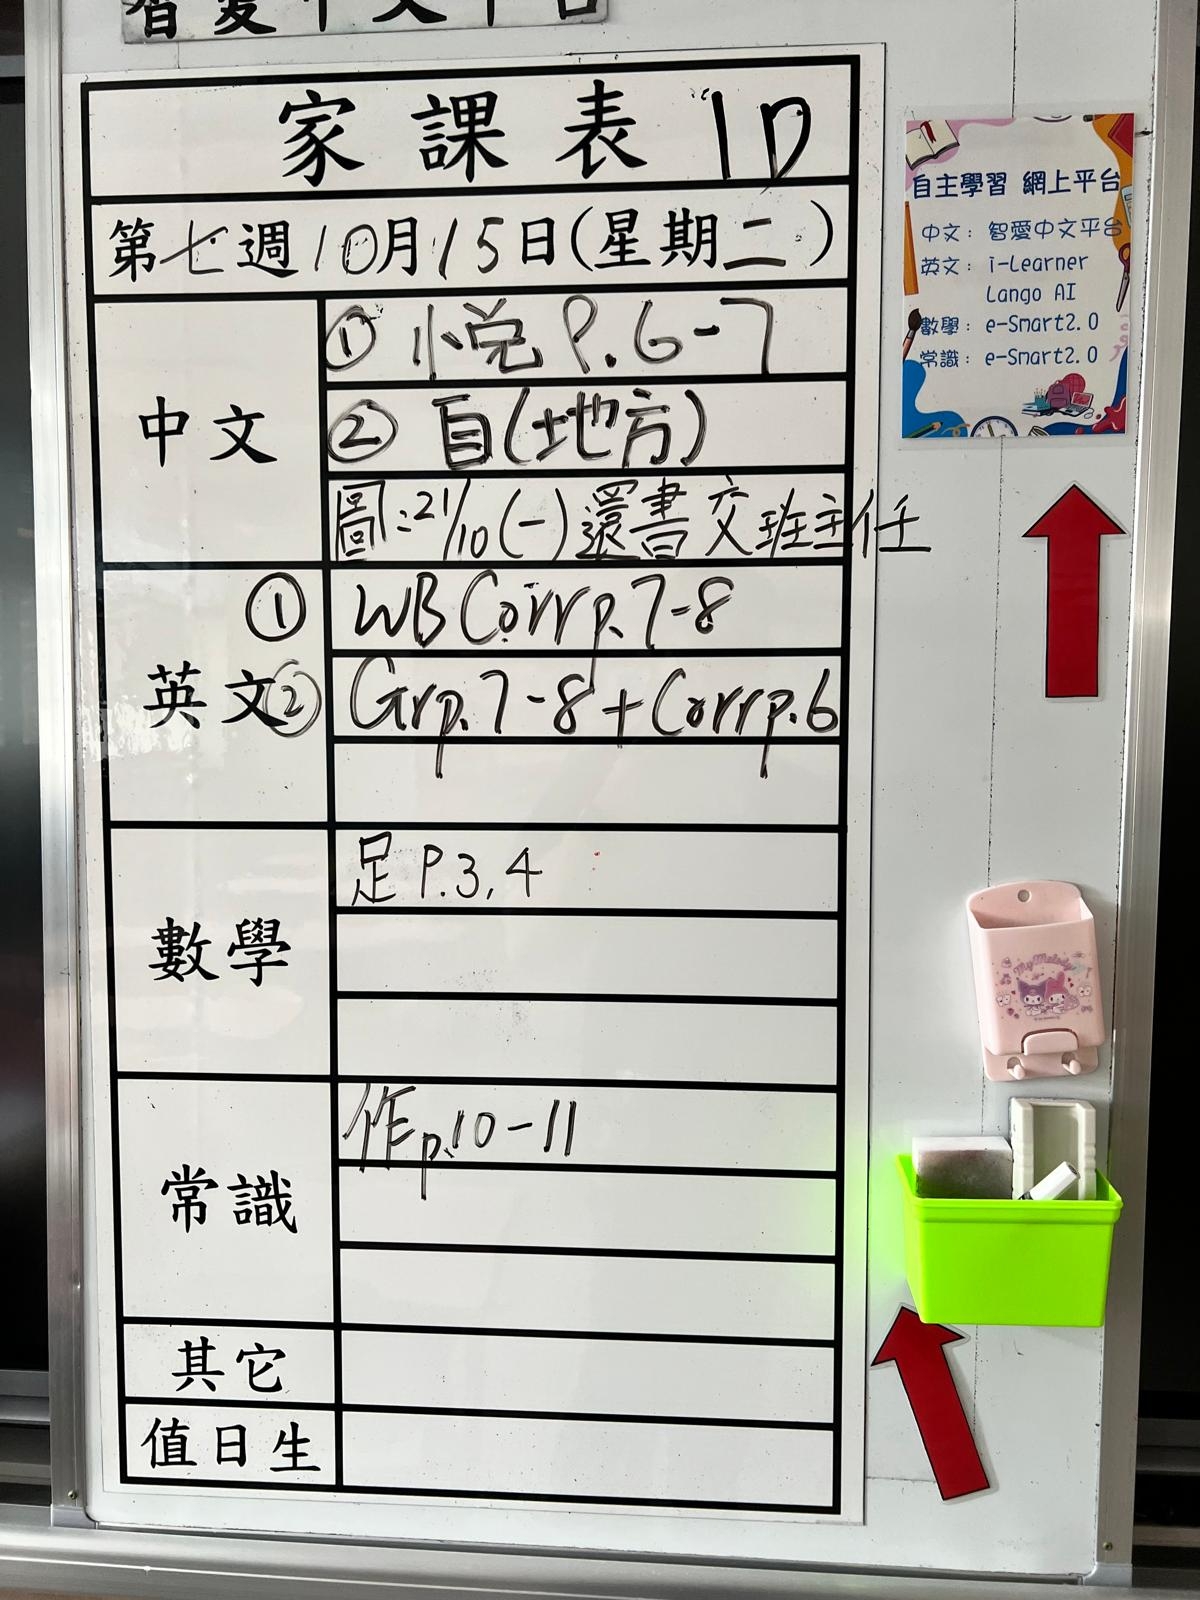 智愛中文平台
家課表 1D
第七週10月15日(星期二)
中文
① 小悅 P.6-7
② 自(地方)
圖:21/10(一)還書交班主任
英文
① WB Corr p.7-8
② Gr p.7-8 + Corr p.6
數學
足 P.3,4
常識
作 p.10-11
其它
值日生
自主學習 網上平台
中文: 智愛中文平台
英文: i-Learner
Lango AI
數學: e-Smart2.0
常識: e-Smart2.0
My Melody